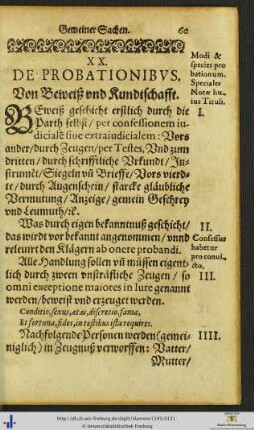 Gemeiner Sachen. 60
XX.
DE PROBATIONIBVS.
Von Beweiß vnd Kundtschafft.
BEweiß geschicht erstlich durch die
Parth selbst / per confessionem iu-
dicialē siue extraiudicialem: Vors
ander / durch Zeugen / per Testes, Vnd zum
dritten / durch schrifftliche Vrkundt / In-
strumēt / Siegeln vñ Brieffe / Vors vierd-
te / durch Augenschein / starcke gläubliche
Vermutung / Anzeige / gemein Geschrey
vnd Leumuth / ꝛc.
Was durch eigen bekanntnuß geschicht /
das wirdt vor bekannt angenommen / vnnd
releuirt den Klägern ab onere probandi.
Alle Handlung sollen vñ müssen eigent-
lich durch zween vnsträffliche Zeugen / so
omni exceptione maiores in Iure genannt
werden / beweist vnd erzeuget werden.
Conditio, sexus, ætas, discretio, fama,
Et fortuna, fides, in testibus ista requires.
Nachfolgende Personen werden (gemei-
niglich) in Zeugnuß verworffen: Vatter /
Mutter /
Modi &
species pro
bationum.
Speciales
Notæ hu-
ius Tituli.
I.
II.
Confessus
habetur
pro conui-
cto.
III.
IIII.